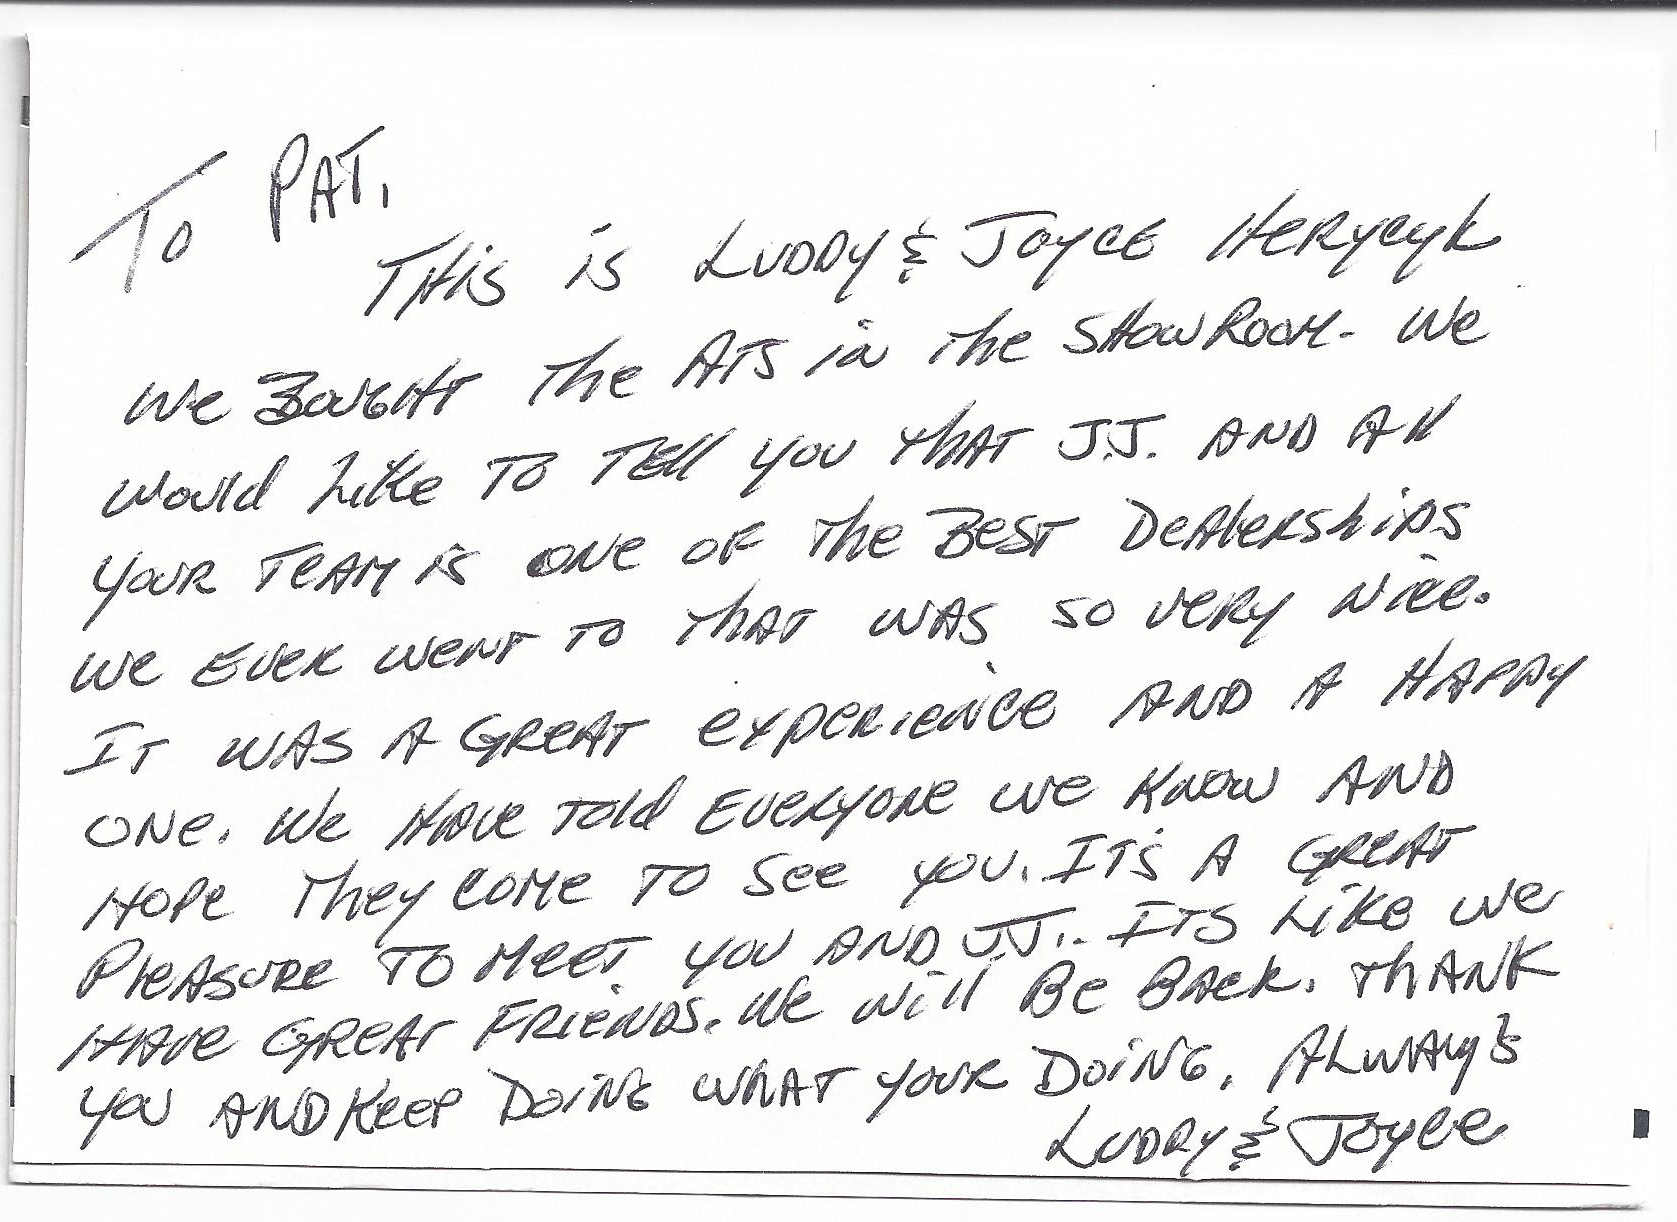 To PAT,
THIS is LUDDY & JOYCE HERYCYK
We BOUGHT The ATS in The SHOWROOM. We
Would Like To Tell you that J.J. AND All
your TEAM is ONE OF The BEST Dealerships
We Ever went TO that WAS so very Nice.
IT WAS A GREAT experience AND A HAPPY
ONE. We HAVE Told EVERYONE we Know AND
HOPE They COME TO See you. IT'S A GREAT
PleASURE TO Meet you AND J.J.. ITS Like We
HAVE GREAT FRIENDS. We Will Be BACK. THANK
YOU AND Keep Doing WHAT YOUR Doing. ALWAY'S
LUDDY & Joyce